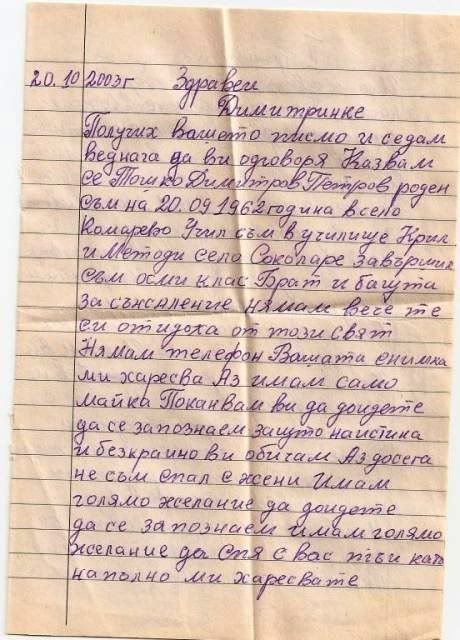 20.10 2003г Здравей
Димитринке
Получих вашето писмо и седам
веднага да ви одговоря Казвам
се Тошко Димитров Петров роден
съм на 20.09 1962 година в село
Комарево Учил съм в училище Крил
и Методи село Соколаре завършил
съм осми клас Брат и бащта
за сънсиление нямам вече те
си отидоха от този свят
Нямам телефон Вашата снимка
ми харесва Аз имам само
майка Поканвам ви да дойдете
да се запознаем защуто наистина
и безкрайно ви обичам Аз досега
не съм спал с жени Имам
голямо желание да дойдете
да се запознаем имам голямо
желание да спя с вас пъи като
напълно ми харесвате